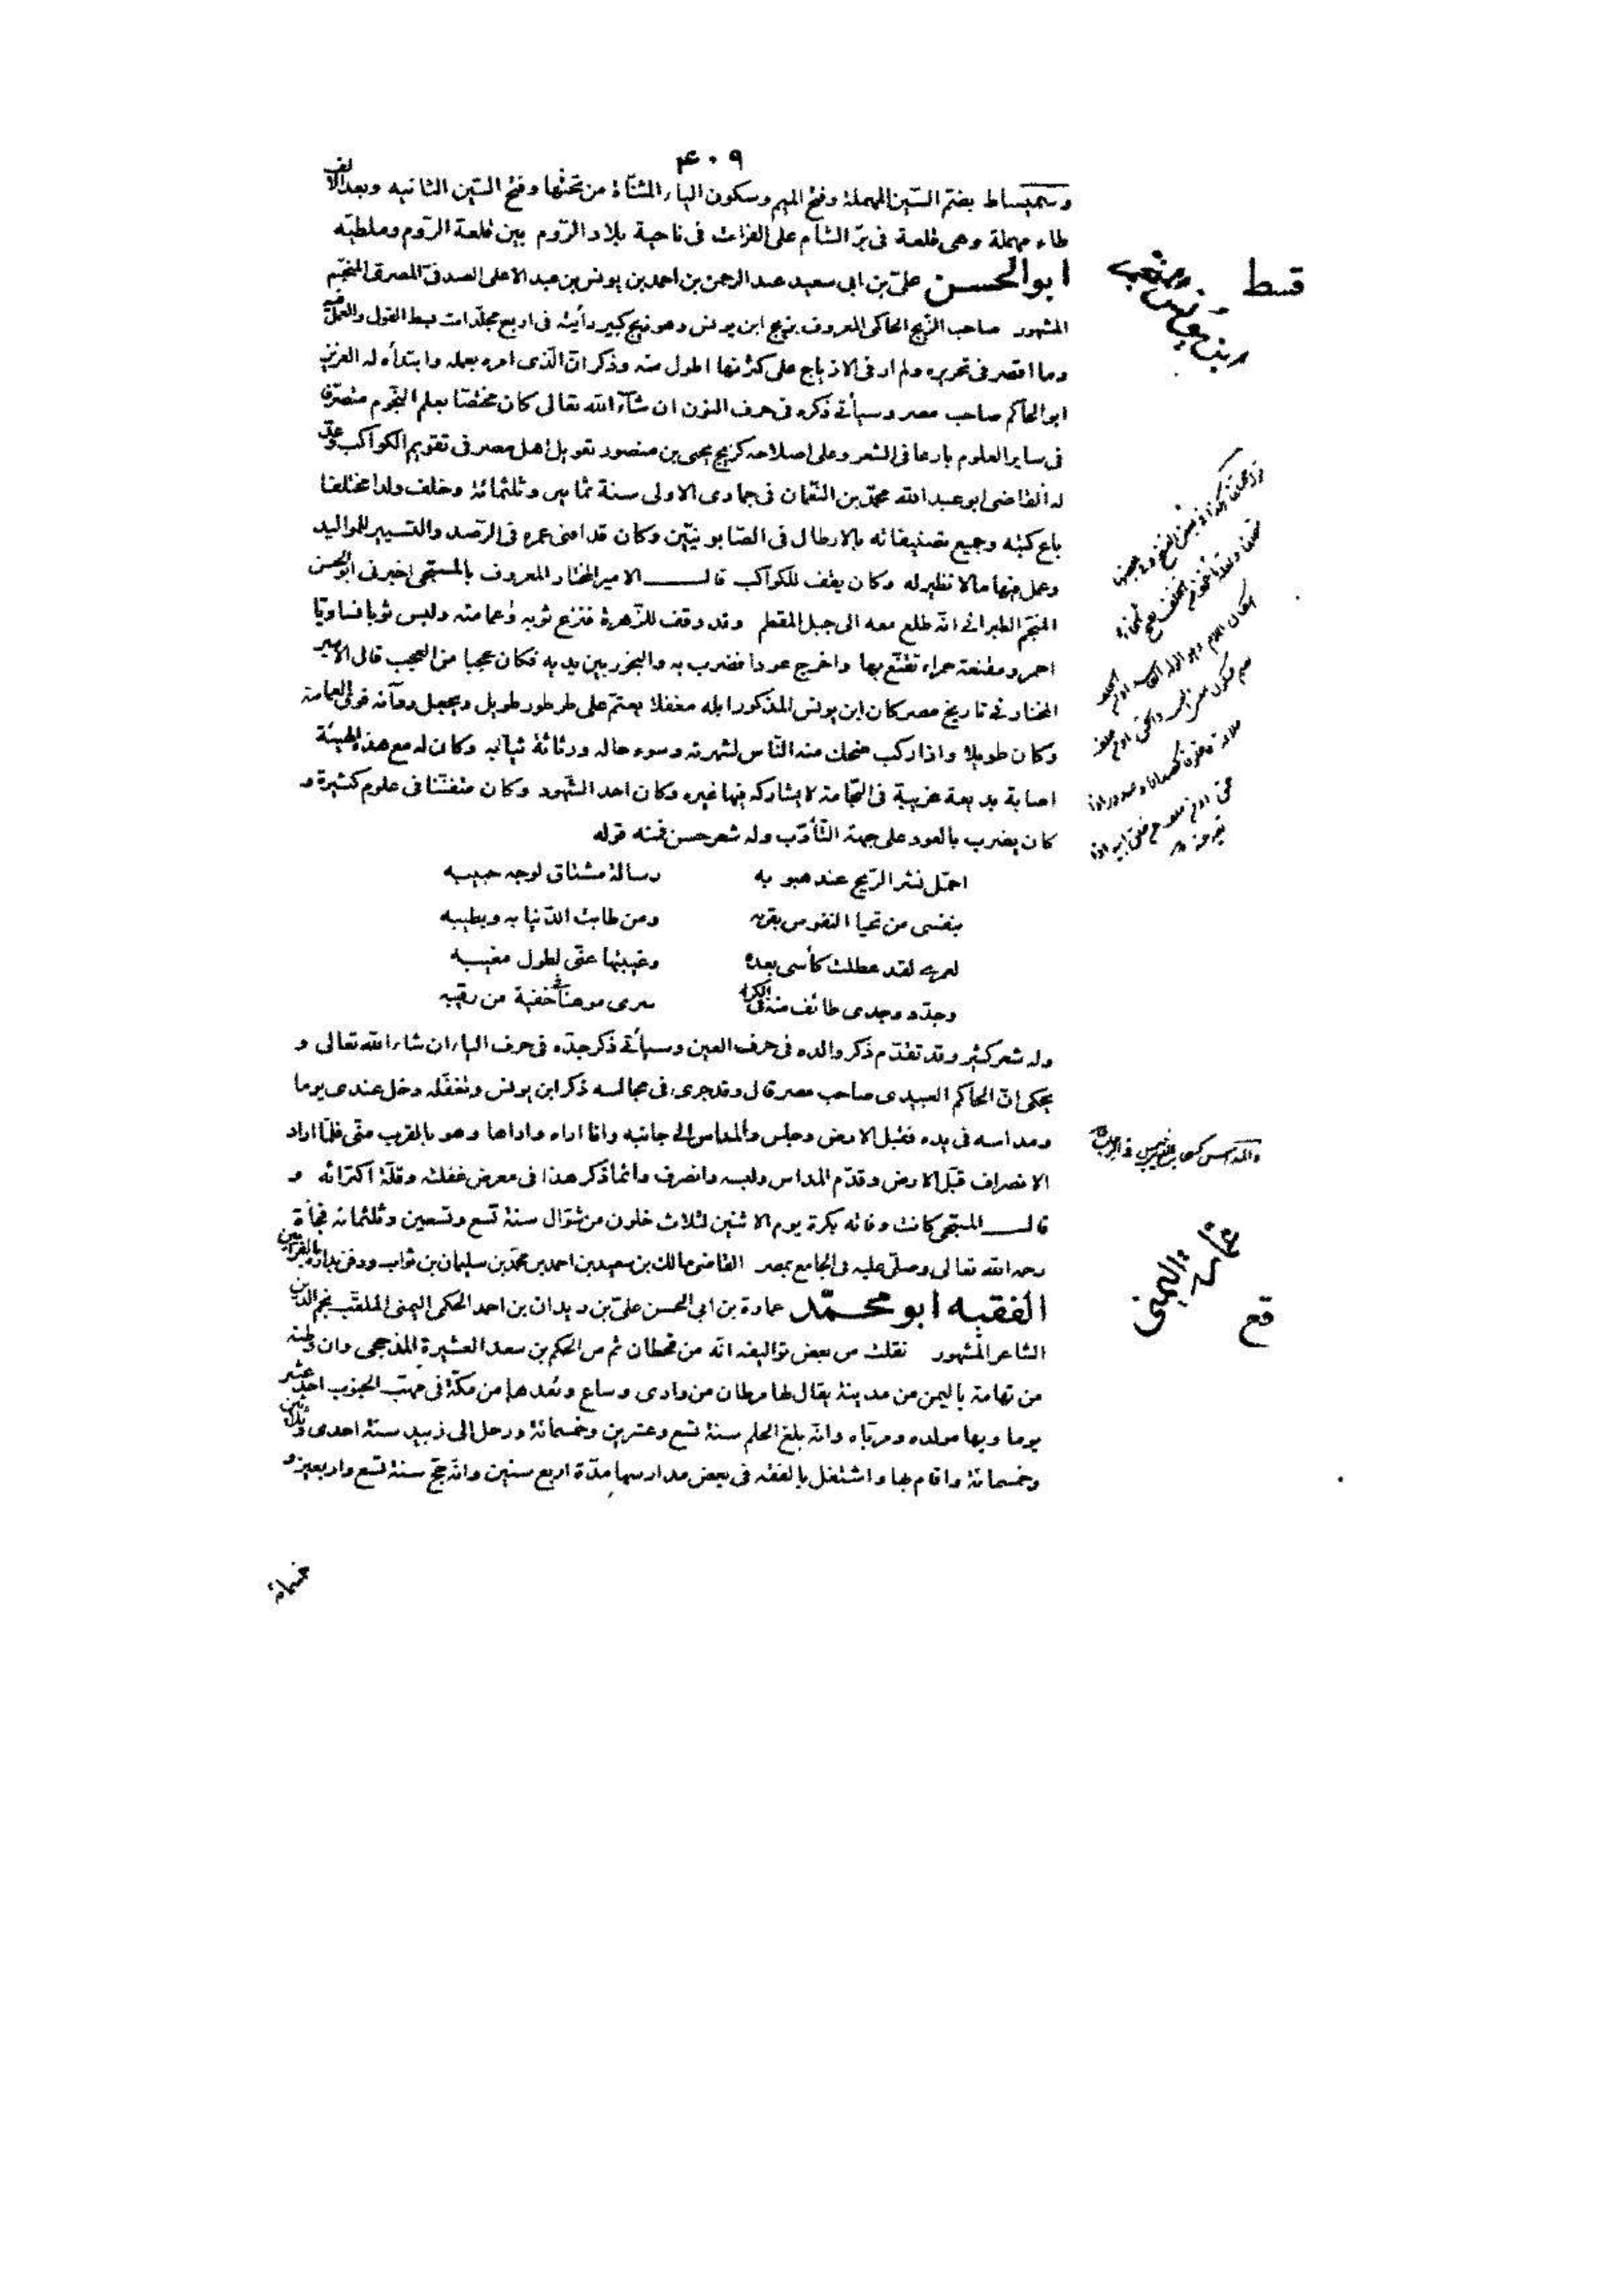 ۴۰۹
وسميساط بضم السّين المهملة وفتح الميم وسكون الياء المثنّاة من تحتها وفتح السّين الثانيه وبعد الالف
طاء مهملة وهى قلعة فى برّ الشام على الفرات فى ناحية بلاد الرّوم بين قلعة الرّوم وملطيّه
قسط
ابو الحسن علىّ بن ابى سعيد عبد الرحمن بن احمد بن يونس بن عبد الاعلى الصدفىّ المصرى المنجّم
المشهور صاحب الزّيج الحاكمى المعروف بزيج ابن يونس وهو زيج كبير رأيته فى اربع مجلّدات بسط القول والعمل فيه
وما اقصر فى تحريره ولم ار فى الازياج على كثرتها اطول منه وذكر انّ الّذى امره بعمله وابتدأه له العزيز
ابو الحاكم صاحب مصر وسيأتى ذكره فى حرف النون ان شآء الله تعالى كان مختصّا بعلم النّجوم متصرّفا
فى ساير العلوم بارعا فى الشعر وعلى اصلاحه كزيج يحيى بن منصور تعويل اهل مصر فى تقويم الكواكب وعدّ
له القاضى ابو عبد الله محمّد بن النّعمان فى جمادى الاولى سنة ثمانين وثلثمائة وخلف ولدا مختلفا
باع كتبه وجميع تصنيفاته بالارطال فى الصّابونيّين وكان قد افنى عمره فى الرّصد والتسيير للمواليد
وعمل فيها ما لا نظير له وكان يقف للكواكب قال الامير المختار المعروف بالمسبّحى اخبرنى ابو الحسن
المنجّم الطبرانى انّه طلع معه الى جبل المقطم وقد وقف للزّهرة فنزع ثوبه وعمامته ولبس ثوبا نساويّا
احمر ومقنعة حمراء تقنّع بها واخرج عودا فضرب به والبخور بين يديه فكان عجبا من العجب قال الامير
المختار فى تاريخ مصر كان ابن يونس المذكور ابله مغفلا يعتمّ على طرطور طويل ويجعل ردآئه فوق العمامة
وكان طويلا واذا ركب ضحك منه النّاس لشهرته وسوء حاله ورثاثة ثيابه وكان له مع هذه الهيئة
اصابة بديعة غريبة فى النّجامة لا يشاركه فيها غيره وكان احد الشّهود وكان متفنّنا فى علوم كثيرة و
كان يضرب بالعود على جهة التّأدّب وله شعر حسن فمنه قوله
احمّل نشر الرّيح عند هبوبه رسالة مشتاق لوجه حبيبه
بنفسى من تحيا النفوس بقربه ومن طابت الدّنيا به وبطيبه
لعمرى لقد عطلت كأسى بعده وغيبتها عنّى لطول مغيبه
وجدّد وجدى طائف منه فى الكرى سرى موهنا فى خفية من رقيبه
وله شعر كثير وقد تقدّم ذكر والده فى حرف العين وسيأتى ذكر جدّه فى حرف الياء ان شاء الله تعالى و
يحكى انّ الحاكم العبيدى صاحب مصر قال وقد جرى فى مجالسه ذكر ابن يونس وتغفّله دخل عندى يوما
ومداسه فى يده فقبل الارض وجلس والمداس الى جانبه وانا اراه واراها وهو بالقرب منّى فلمّا اراد
الانصراف قبّل الارض وقدّم المداس ولبسه وانصرف وانّما ذكر هذا فى معرض غفلته وقلّة اكتراثه و
قال المسبّحى كانت وفاته بكرة يوم الاثنين لثلاث خلون من شوّال سنة تسع وتسعين وثلثمائه فجأة
رحمه الله تعالى وصلّى عليه فى الجامع بمصر القاضى مالك بن سعيد بن احمد بن محمّد بن سليمان بن ثواب ودفن بداره بالفرّائين
عمارة اليمنى
قع
الفقيه ابو محمّد عمارة بن ابى الحسن علىّ بن زيدان بن احمد الحكمى اليمنى الملقّب نجم الدّين
الشاعر المشهور نقلت من بعض تواليفه انّه من قحطان ثم من الحكم بن سعد العشيرة المذحجى وان وطنه
من تهامة باليمن من مدينة يقال لها مرطان من وادى وساع وبعدها من مكّة فى مهبّ الجنوب احد عشر
يوما وبها مولده ومربّاه وانّه بلغ الحلم سنة تسع وعشرين وخمسمائة ورحل الى زبيد سنة احدى وثلاثين
وخمسمائة واقام بها واشتغل بالفقه فى بعض مدارسها مدّة اربع سنين وانّه حجّ سنة تسع واربعين و
خمسمائة